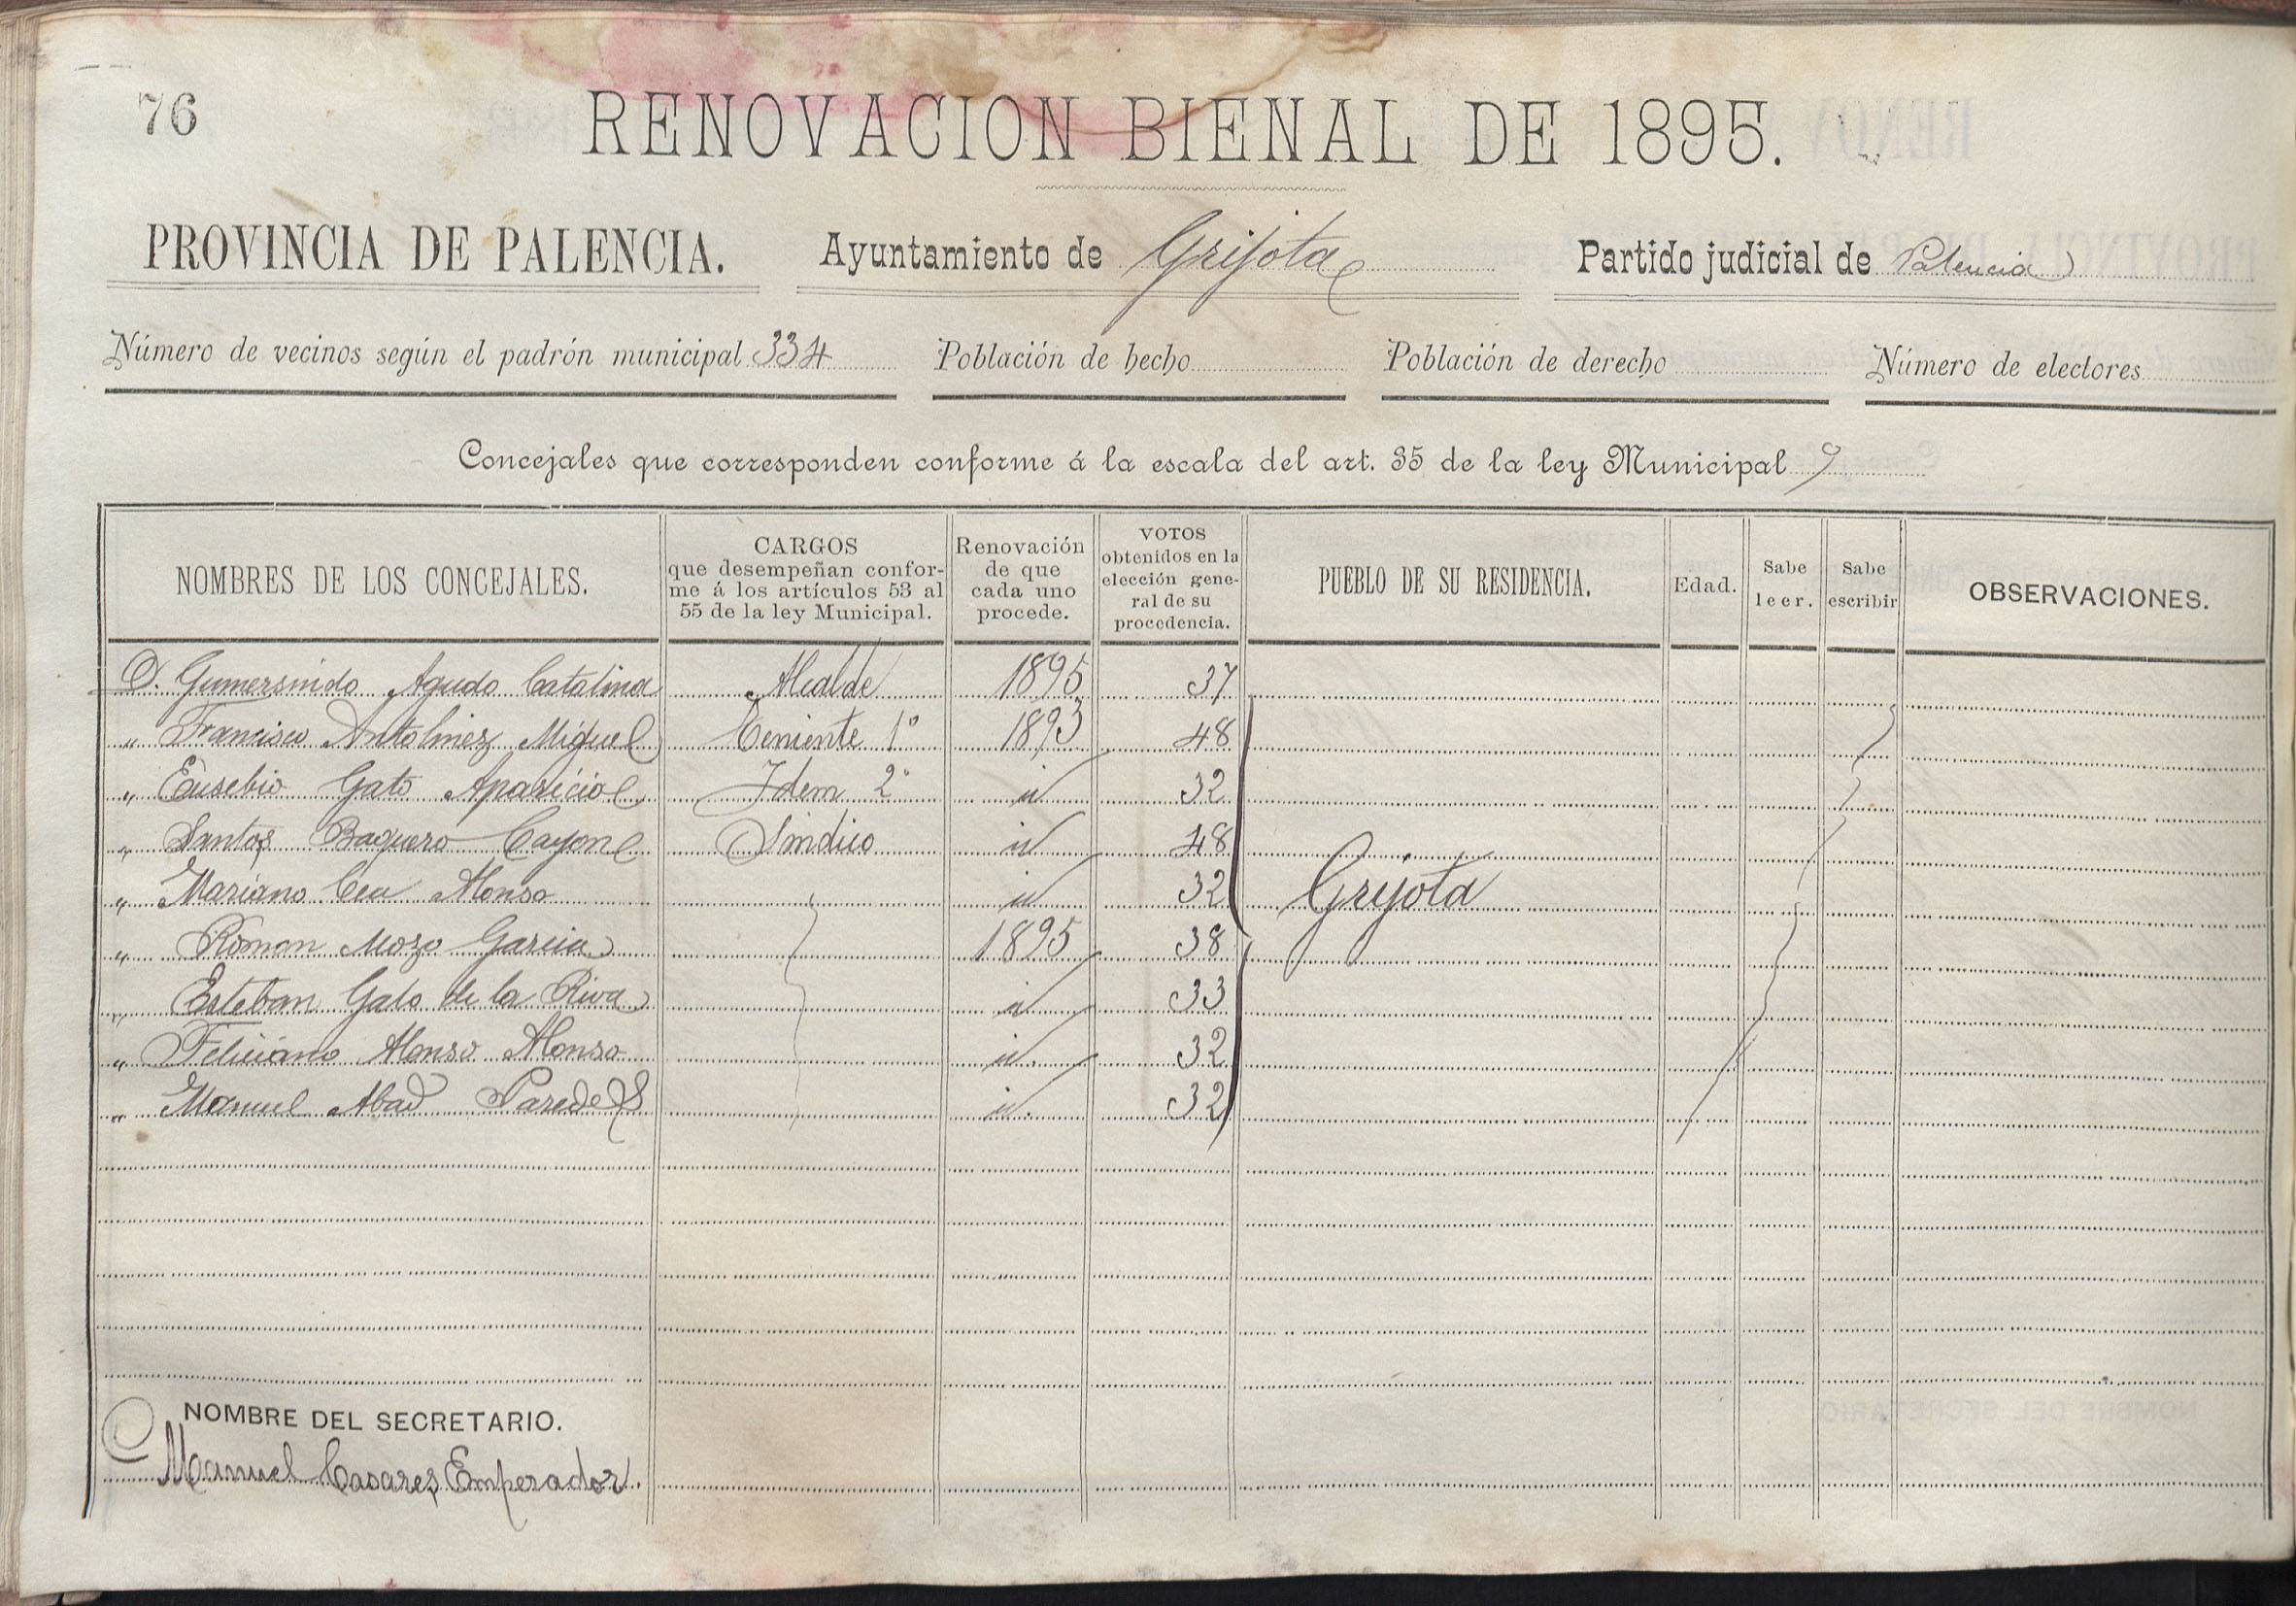 76
RENOVACION BIENAL DE 1895.
PROVINCIA DE PALENCIA. Ayuntamiento de Grijota Partido judicial de Palencia
Número de vecinos según el padrón municipal 334 Población de hecho Población de derecho Número de electores
Concejales que corresponden conforme á la escala del art. 35 de la ley Municipal 9
NOMBRES DE LOS CONCEJALES. CARGOS que desempeñan conforme á los artículos 53 al 55 de la ley Municipal. Renovación de que cada uno procede. VOTOS obtenidos en la elección general de su procedencia. PUEBLO DE SU RESIDENCIA. Edad. Sabe leer. Sabe escribir OBSERVACIONES.
D. Gumersindo Agudo Catalina Alcalde 1895 37
" Francisco Antolinez Miguel Teniente 1º 1893 48
" Eusebio Gato Aparicio Idem 2º id 32
" Santos Baquero Cayon Sindico id 48
" Mariano Cea Alonso id 32 Grijota
" Roman Mozo Garcia 1895 38
" Esteban Gato de la Riva id 33
" Feliciano Alonso Alonso id 32
" Manuel Abad Paredes id. 32
NOMBRE DEL SECRETARIO.
D Manuel Casares Emperador.